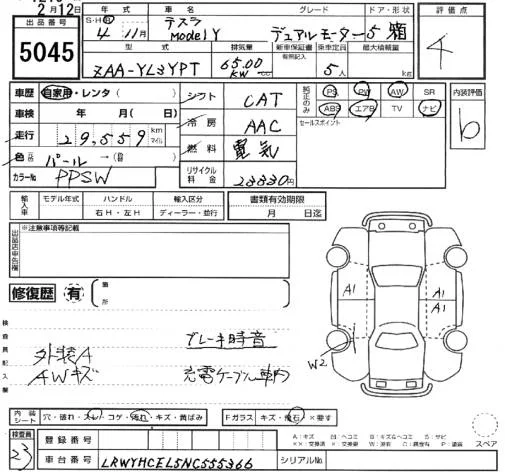 2月12日
出品番号
5045
年式 車名 グレード ドア・形状
S・H・R 4年 11月 テスラ ModelY デュアルモーター 5 箱
型式 排気量 新車保証書 乗車定員 最大積載量
ZAA-YL3YPT 65.00 KW 有(記録簿) 5人 kg
評価点
4
車歴 自家用・レンタ( ) シフト CAT
車検 年 月( 日) 冷房 AAC
走行 29,559 km マイル 燃料 電気
色 パール→( ) リサイクル料金 23830円
カラーNo PPSW
純正のみ PS PW AW SR
ABS エアB TV ナビ
セールスポイント
内装評価
b
輸入車 モデル年式 ハンドル 輸入区分 書類有効期限
右H・左H ディーラー・並行 月 日迄
出品店申告欄 ※注意事項等記載
修復歴 有 箇所
検査員記入欄
ブレーキ時音
外装A
AWキズ 充電ケーブル車内
A1 A1
W2
内装シート 穴・破れ・スレ・コゲ・汚れ・キズ・黄ばみ Fガラス キズ・飛石・×要す
スペア
検査員 23
登録番号
A:キズ B:キズ&ヘコミ S:サビ
××:交換済 ×:要交換 W:波有 C:腐食有 P:塗装
車台番号 LRWYHCEL5NC555366 シリアルNo.